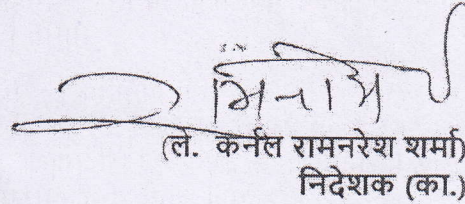 (ले. कर्नल रामनरेश शर्मा)
निदेशक (का.)